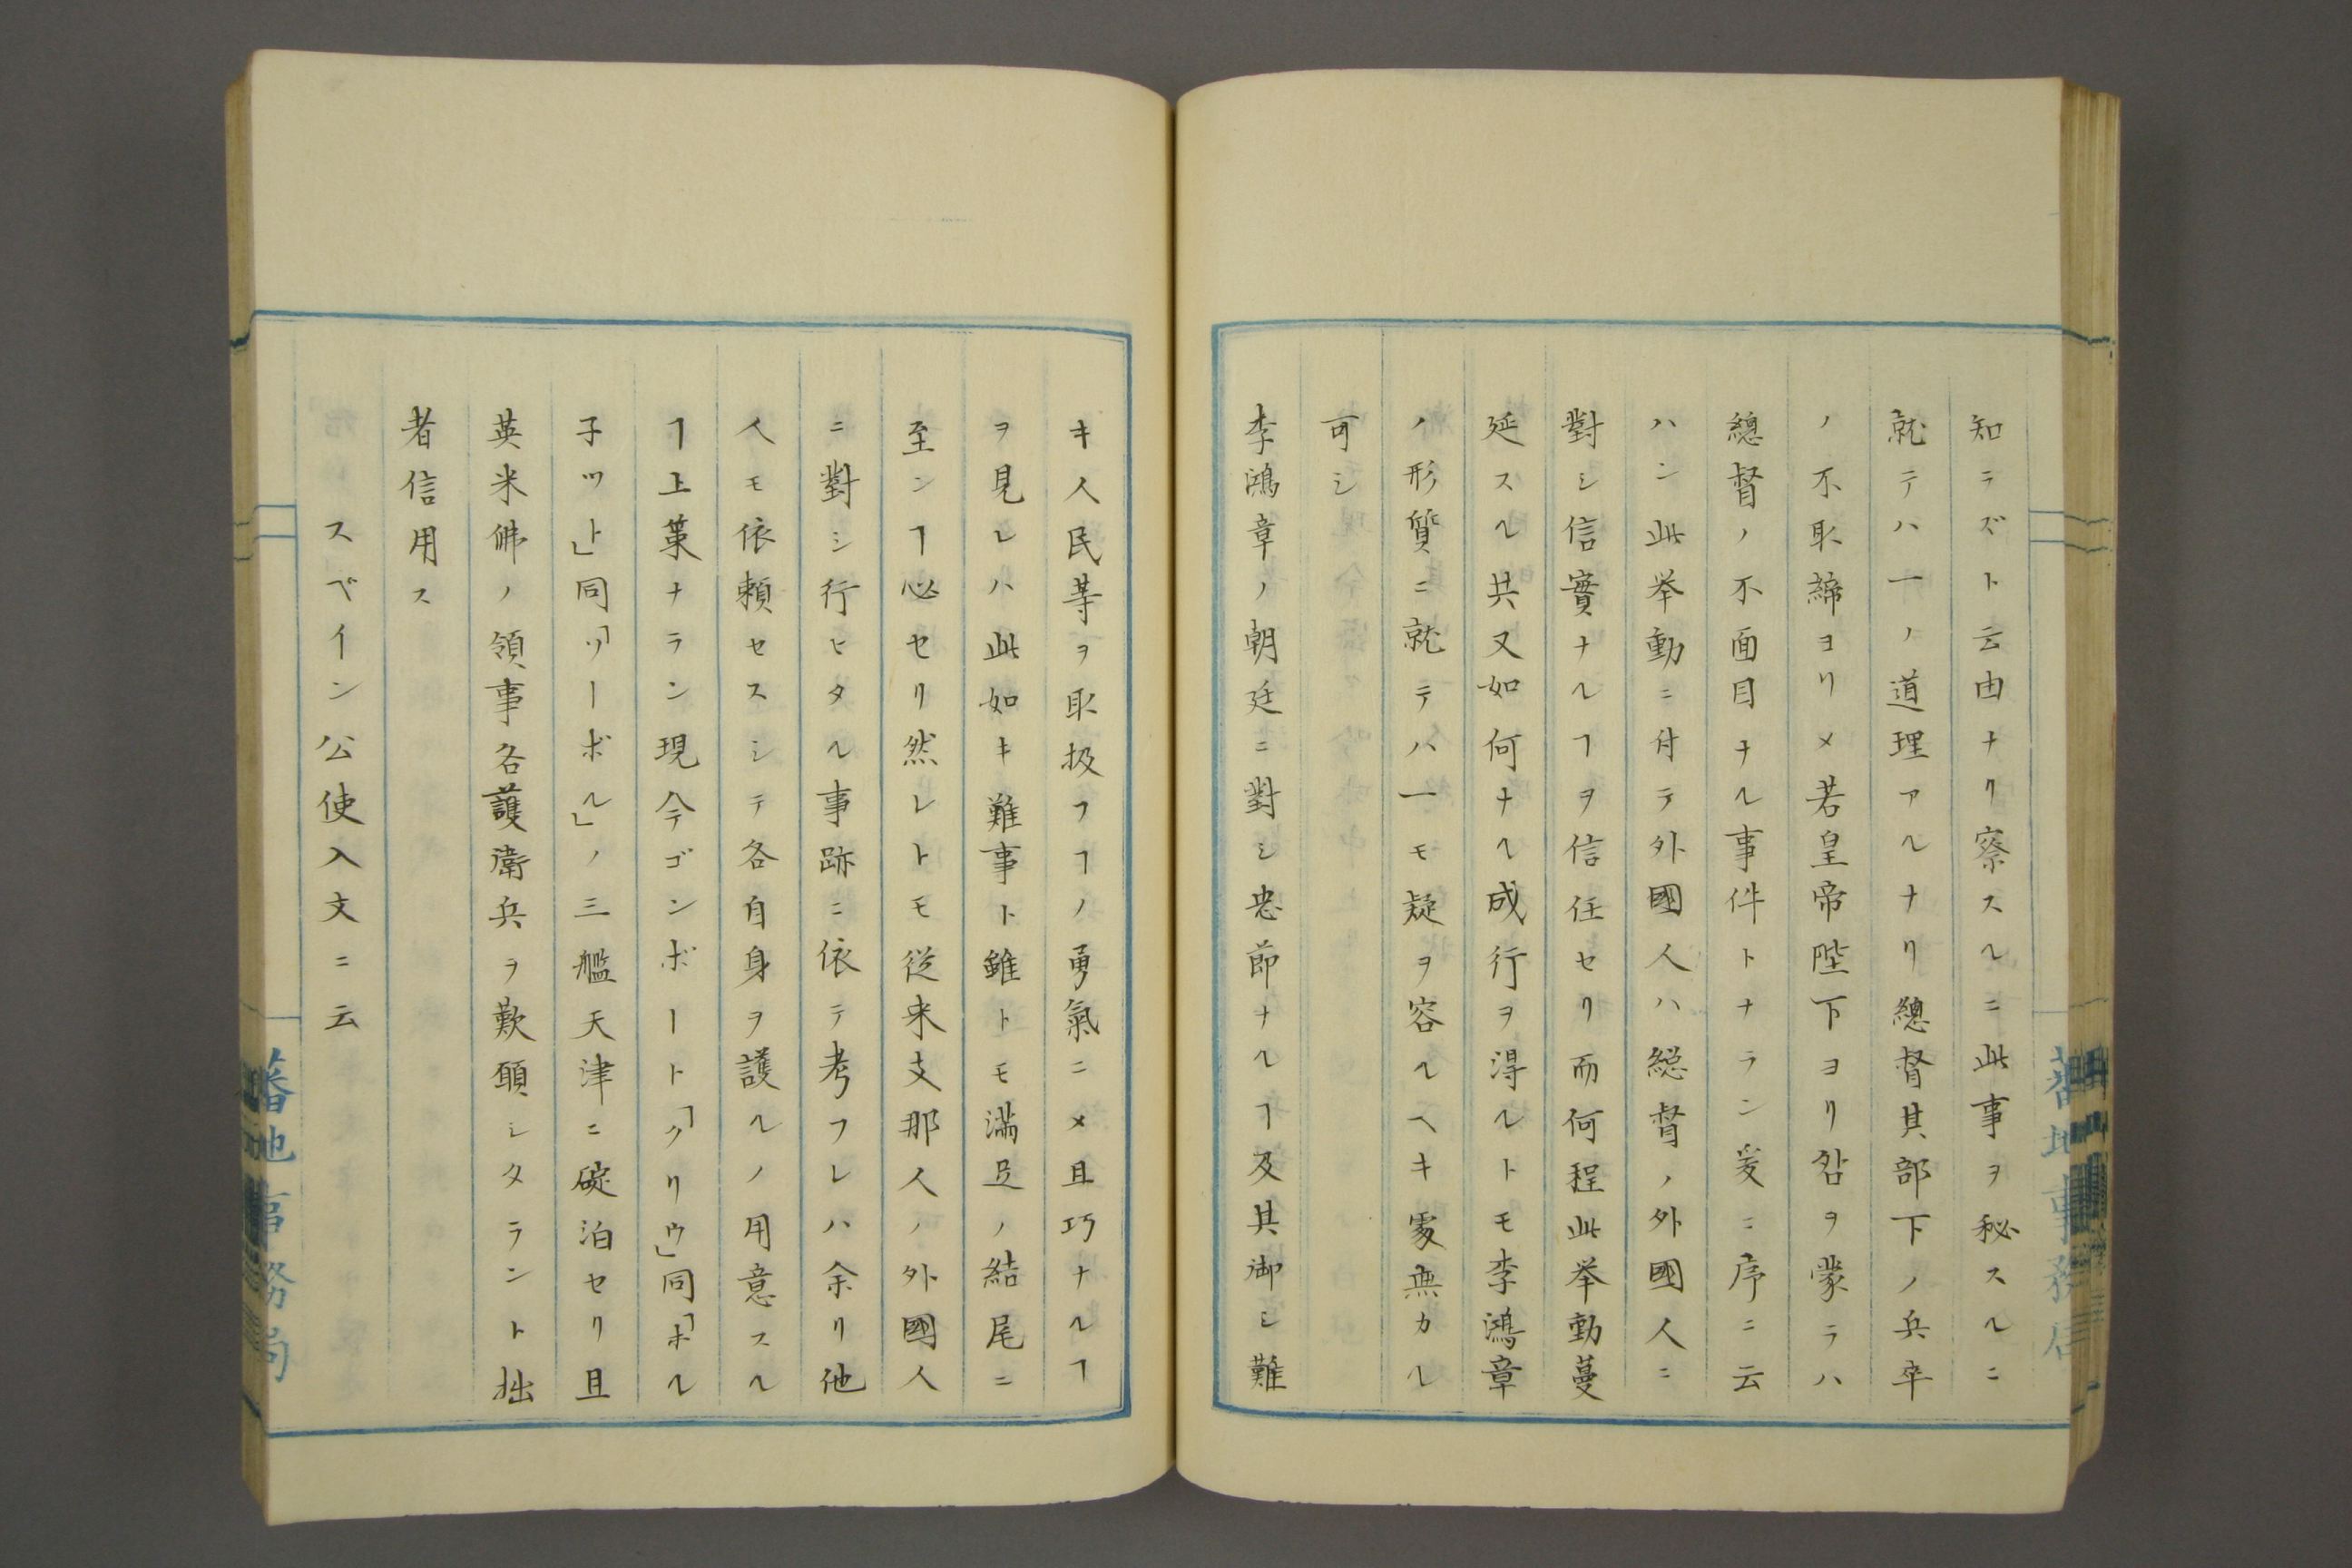 知ラズト云由ナリ察スルニ此事ヲ秘スルニ
就テハ一ノ道理アルナリ總督其部下ノ兵卒
ノ不取締ヨリメ若皇帝陛下ヨリ咎ヲ蒙ラハ
總督ノ不面目ナル事件トナラン爰ニ序ニ云
ハン此挙動ニ付テ外國人ハ総督ノ外國人ニ
對シ信實ナルヿヲ信任セリ而何程此挙動蔓
延スル共又如何ナル成行ヲ得ルトモ李鴻章
ノ形質ニ就テハ一モ疑ヲ容ルヘキ處無カル
可シ
李鴻章ノ朝廷ニ對シ忠節ナルヿ及其御シ難
キ人民等ヲ取扱フヿノ勇氣ニメ且巧ナルヿ
ヲ見レハ此如キ難事ト雖トモ満足ノ結尾ニ
至ンヿ必セリ然レトモ従来支那人ノ外國人
ニ對シ行ヒタル事跡ニ依テ考フレハ余リ他
人モ依頼セスシテ各自身ヲ護ルノ用意スル
ヿ上菓ナラン現今ゴンボート「クリウ」同「ホル
子ット」同「ツーボル」ノ三艦天津ニ碇泊セリ且
英米佛ノ領事各護衛兵ヲ歎願シタラント拙
者信用ス
スペイン公使入文ニ云
蕃地事務局
蕃地事務局